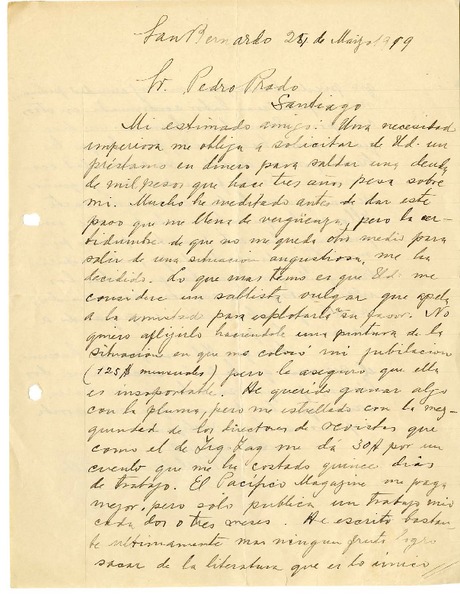 San Bernardo 25 de Marzo 1919
Sr. Pedro Prado
Santiago
Mi estimado amigo: Una necesidad
imperiosa me obliga a solicitar de Ud. un
préstamo en dinero para saldar una deuda
de mil pesos que hace tres años pesa sobre
mi. Mucho he meditado antes de dar este
paso que me llena de vergüenza, pero la cer-
tidumbre de que no me queda otro medio para
salir de una situacion angustiosa, me ha
decidido. Lo que mas temo es que Ud. me
considere un sablista vulgar que apela
a la amistad para esplotarla en su favor. No
quiero aflijirlo haciendole una pintura de la
situacion en que me colocó mi jubilacion
(125$ mensuales) pero le aseguro que ella
es insoportable. He querido ganar algo
con la pluma, pero me estrellado con la mez-
quindad de los directores de revistas que
como el de Zig Zag me dá 30$ por un
cuento que me ha costado quince dias
de trabajo. El Pacífico Magazine me paga
mejor, pero sólo publica un trabajo mio
cada dos o tres meses. He escrito bastan-
te ultimamente mas ningun fruto logro
sacar de la literatura que es lo único